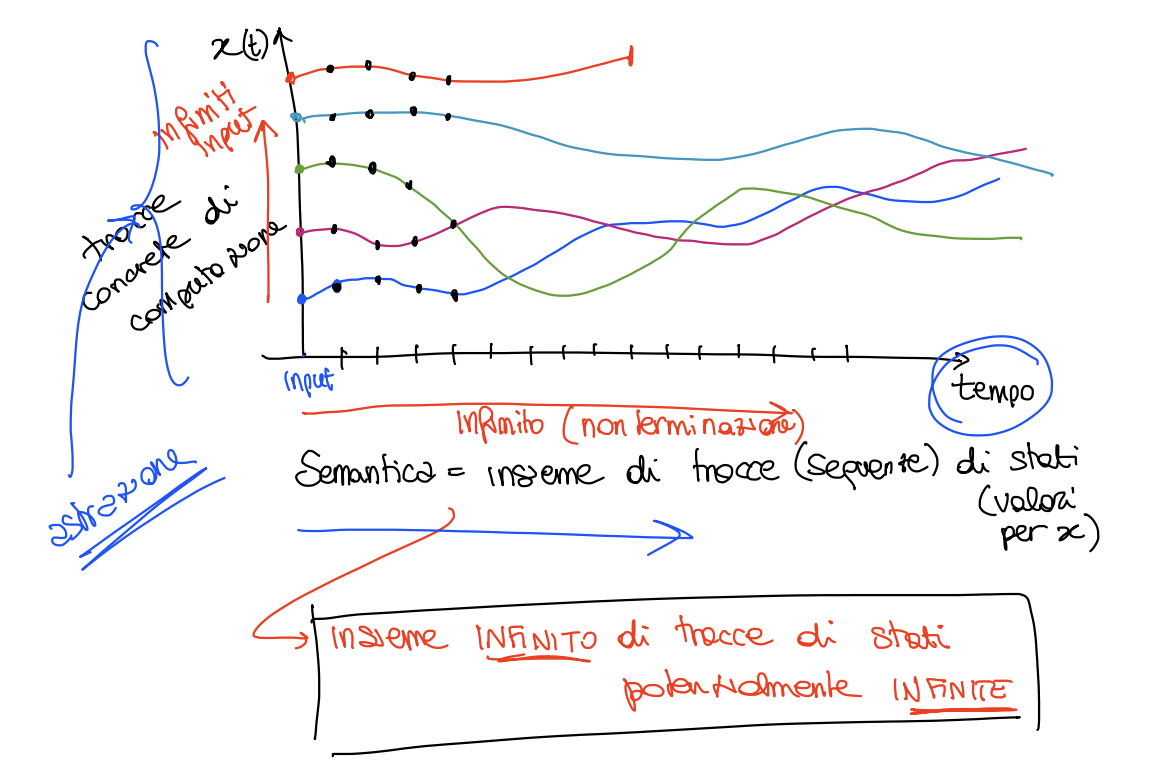 x(t)
infiniti
input
tracce
concrete di
computazione
input
tempo
Infinito (non terminazione)
Semantica = insieme di tracce (sequenze) di stati
(valori
per x)
astrazione
insieme INFINITO di tracce di stati
potenzialmente INFINITE